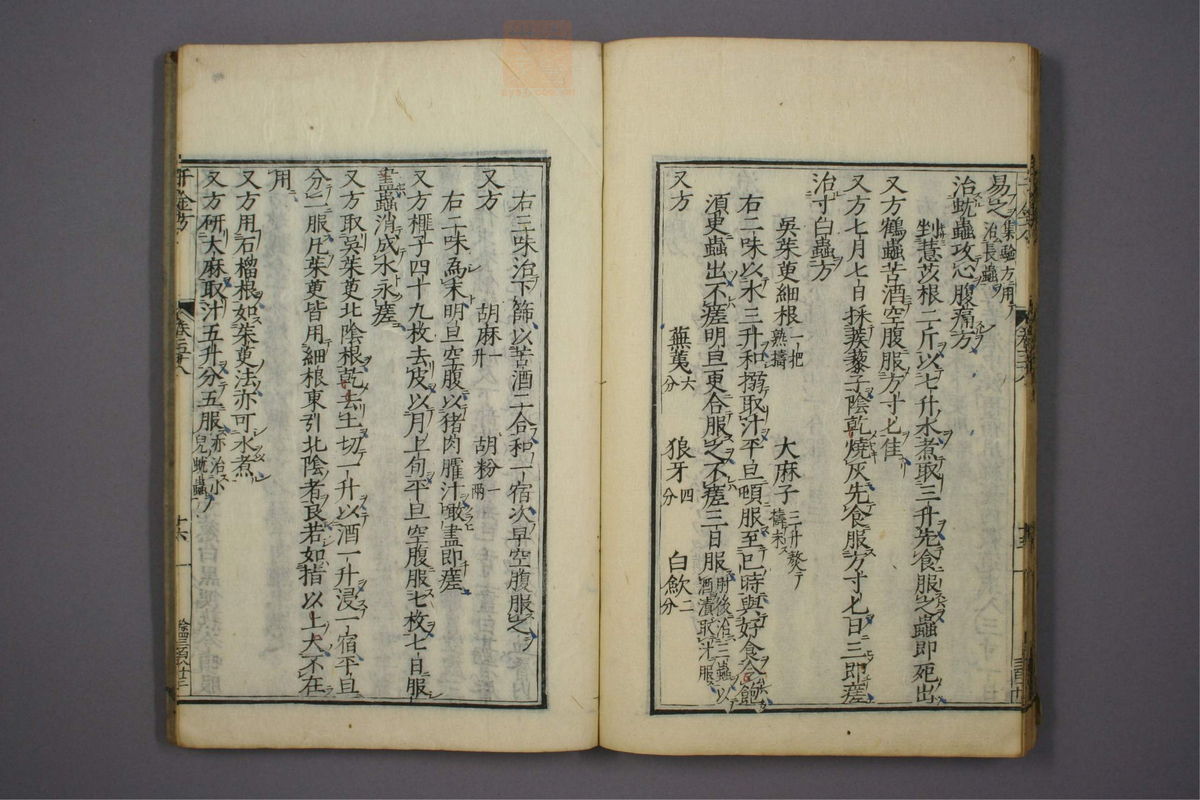 易之集驗方用治長蟲
治蚘蟲攻心腹痛方
剉薏苡根二斤以七升水煮取三升先食服之蟲即死出
又方鶴蟲苦酒空腹服方寸匕佳
又方七月七日採蒺藜子陰乾燒灰先食服方寸匕日三即瘥
治寸白蟲方
吳茱萸細根一把熟擣 大麻子三升熬擣末
右二味以水三升和搦取汁平旦頓服至巳時與好食令飽
須更蟲出不瘥明旦更合服之不瘥三日服肘後治三蟲以酒漬取汁服
又方 蕪荑六分 狼牙四分 白歛二分
右三味治下篩以苦酒二合和一宿次早空腹服之
又方 胡麻一升 胡粉一兩
右二味為末明旦空腹以猪肉臛汁啖盡即瘥
又方榧子四十九枚去皮以月上旬平旦空腹服七枚七日服
盡蟲消成水永瘥
又方取吳茱萸北陰根乾去土切一升以酒一升浸一宿平旦
分二服凡茱萸皆用細根東引北陰者良若如指以上大不在
用
又方用石榴根如茱萸法亦可水煮
又方研大麻取汁五升分五服亦治小兒蚘蟲
千金方 卷三十八 十六